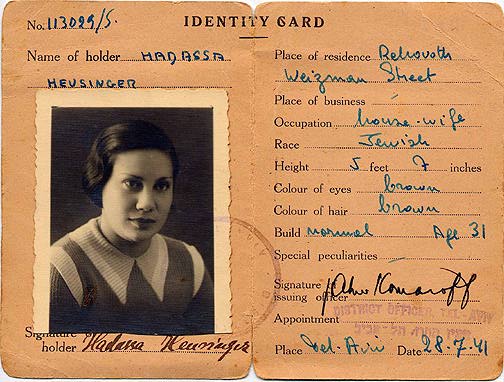 IDENTITY CARD
No. 113099/S.
Name of holder HADASSA
HEUSINGER
Signature of
holder Hadassa Heusinger
Place of residence Rehovoth
Weizman Street
Place of business
Occupation house-wife
Race Jewish
Height 5 feet 7 inches
Colour of eyes brown
Colour of hair brown
Build normal Age 31
Special peculiarities
Signature of
issuing officer
DISTRICT OFFICER, TEL-AVIV
Appointment
Place Tel-Aviv Date 28.7.41